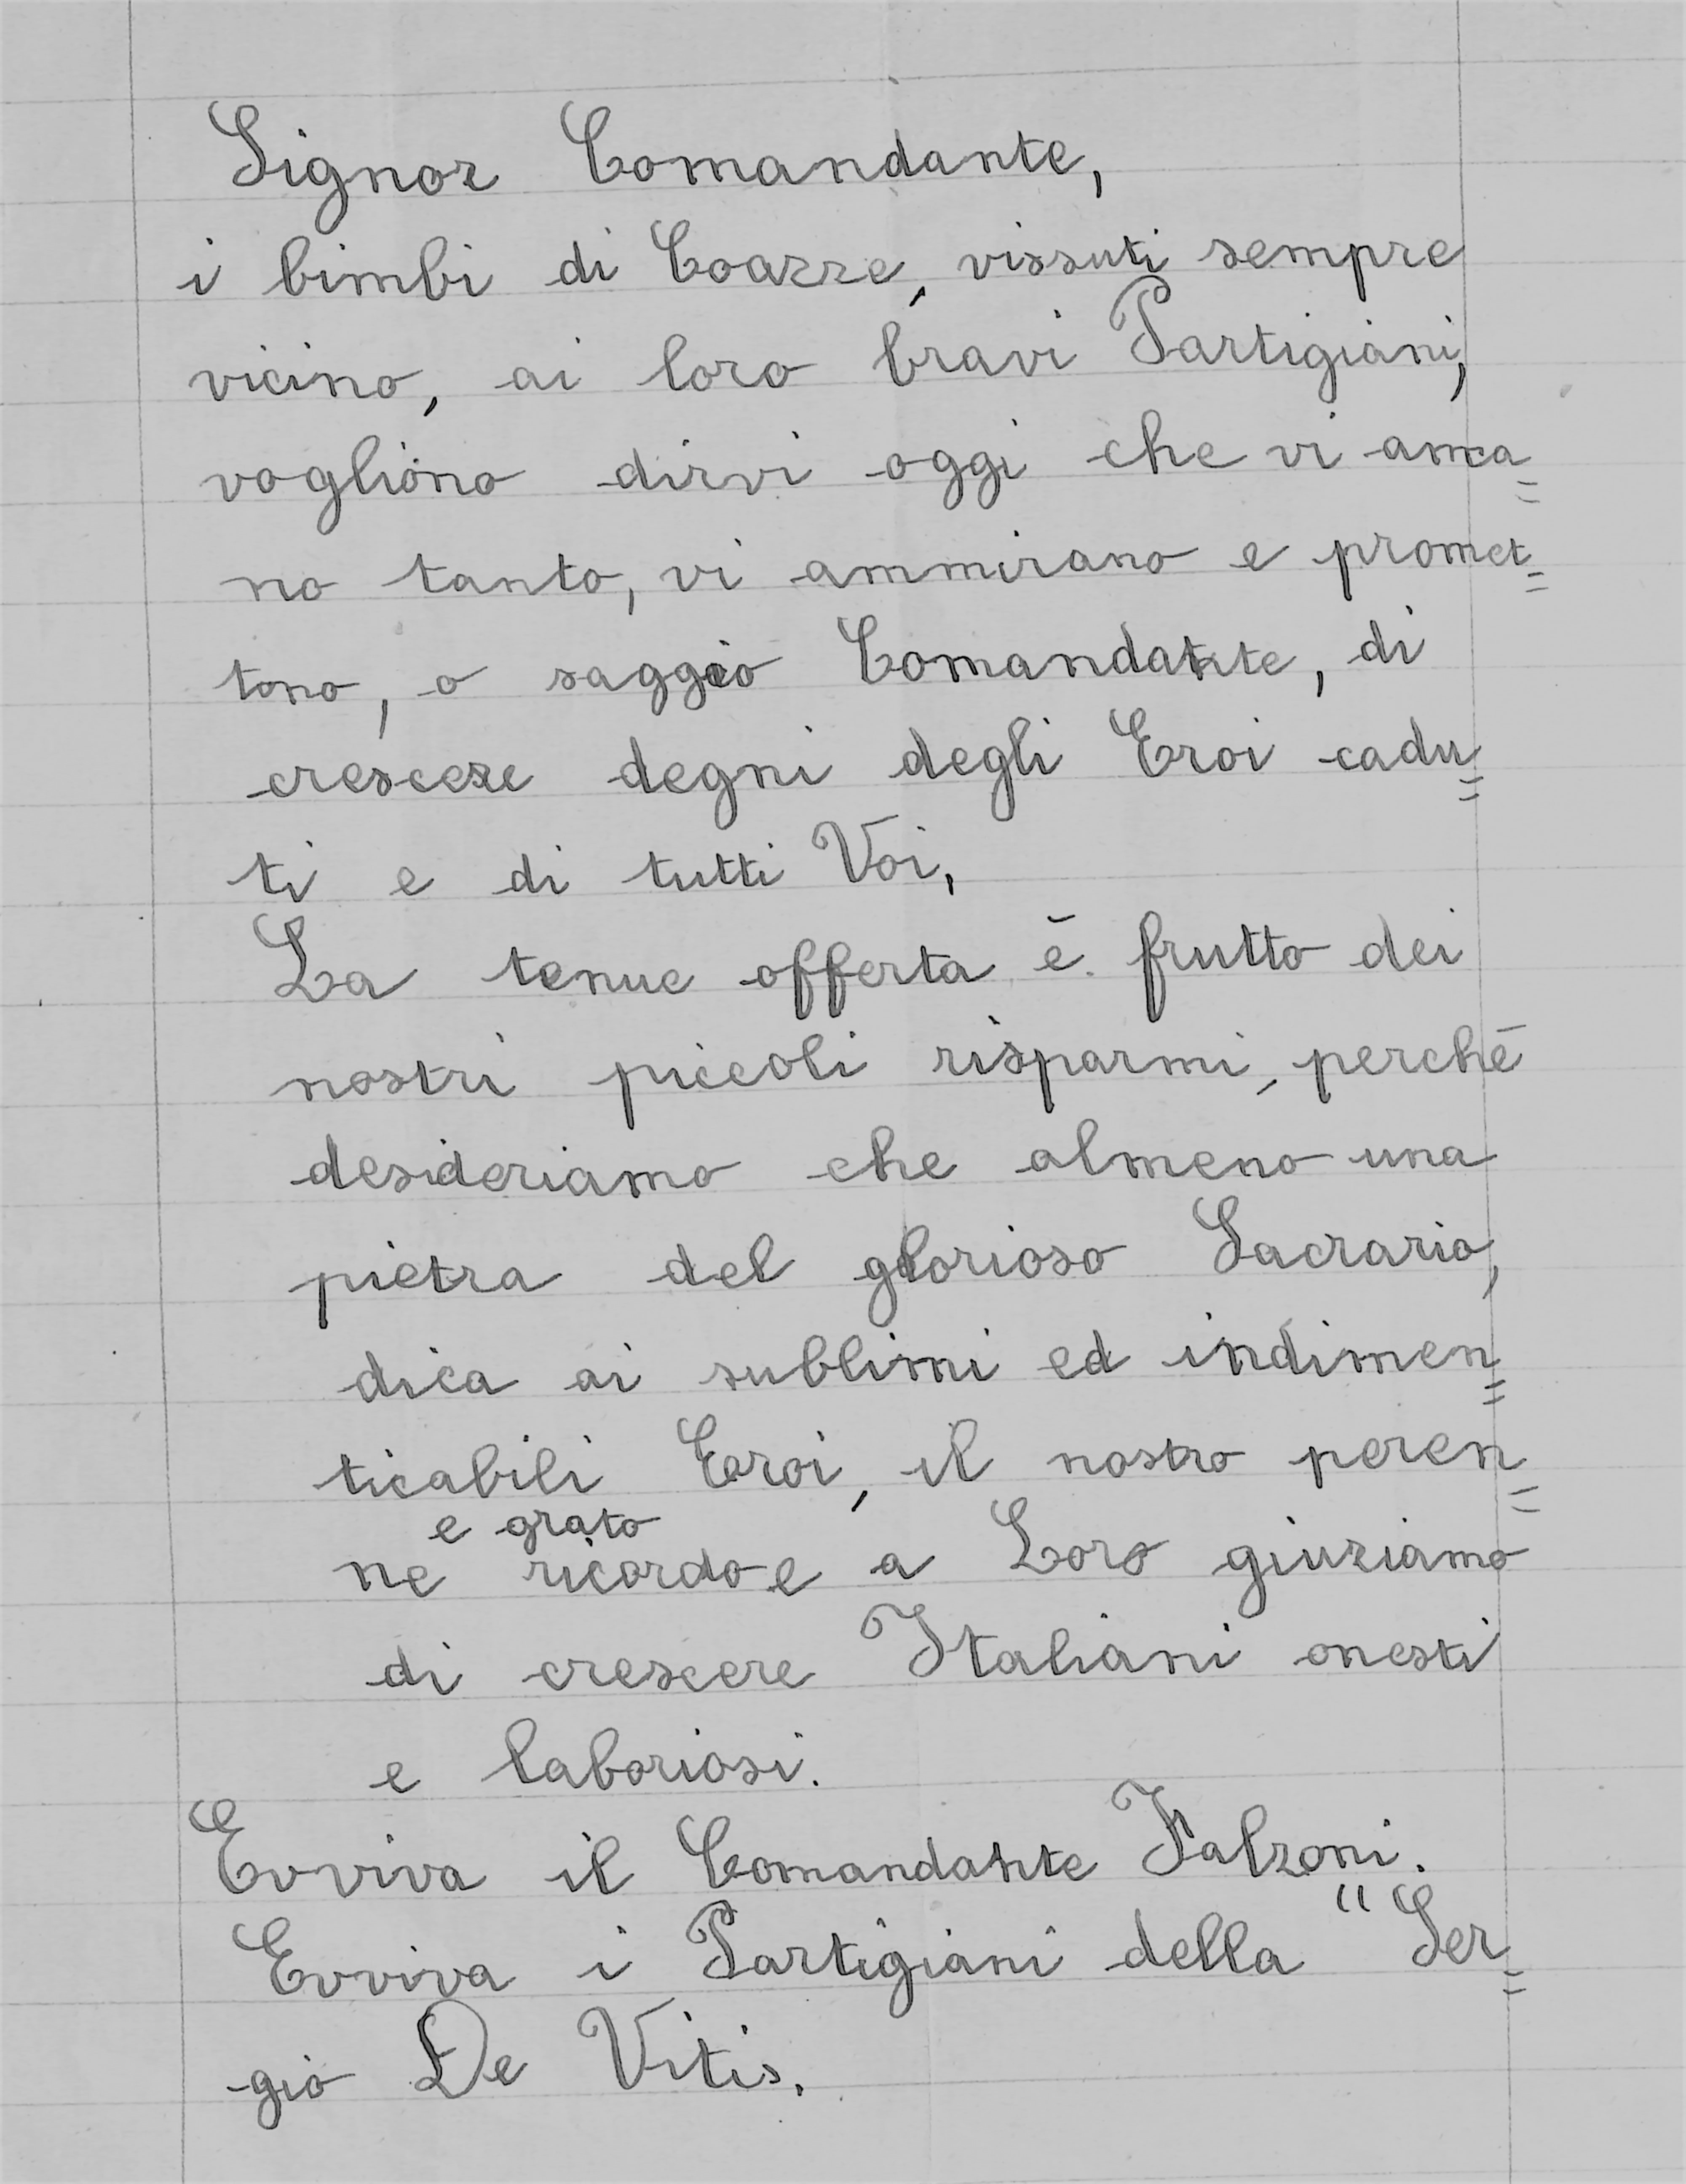 Signor Comandante,
i bimbi di Coazze, vissuti sempre
vicino, ai loro bravi Partigiani,
vogliono dirvi oggi che vi ama=
no tanto, vi ammirano e promet=
tono, o saggio Comandante, di
crescere degni degli Eroi cadu=
ti e di tutti Voi,
La tenue offerta è frutto dei
nostri piccoli risparmi, perché
desideriamo che almeno una
pietra del glorioso Sacrario,
dica ai sublimi ed indimen=
ticabili Eroi, il nostro peren=
e grato
ne ricordo e a Loro giuriamo
di crescere Italiani onesti
e laboriosi.
Evviva il Comandante Falzoni.
Evviva i Partigiani della "Ser=
gio De Vitis.